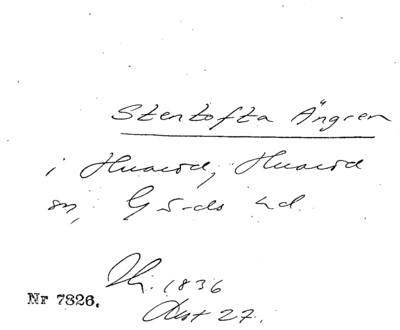 Stentofta Ängren
i Huaröd, Huaröd
sn, G-ds hd.
1836
Akt 27.
Nr 7826.